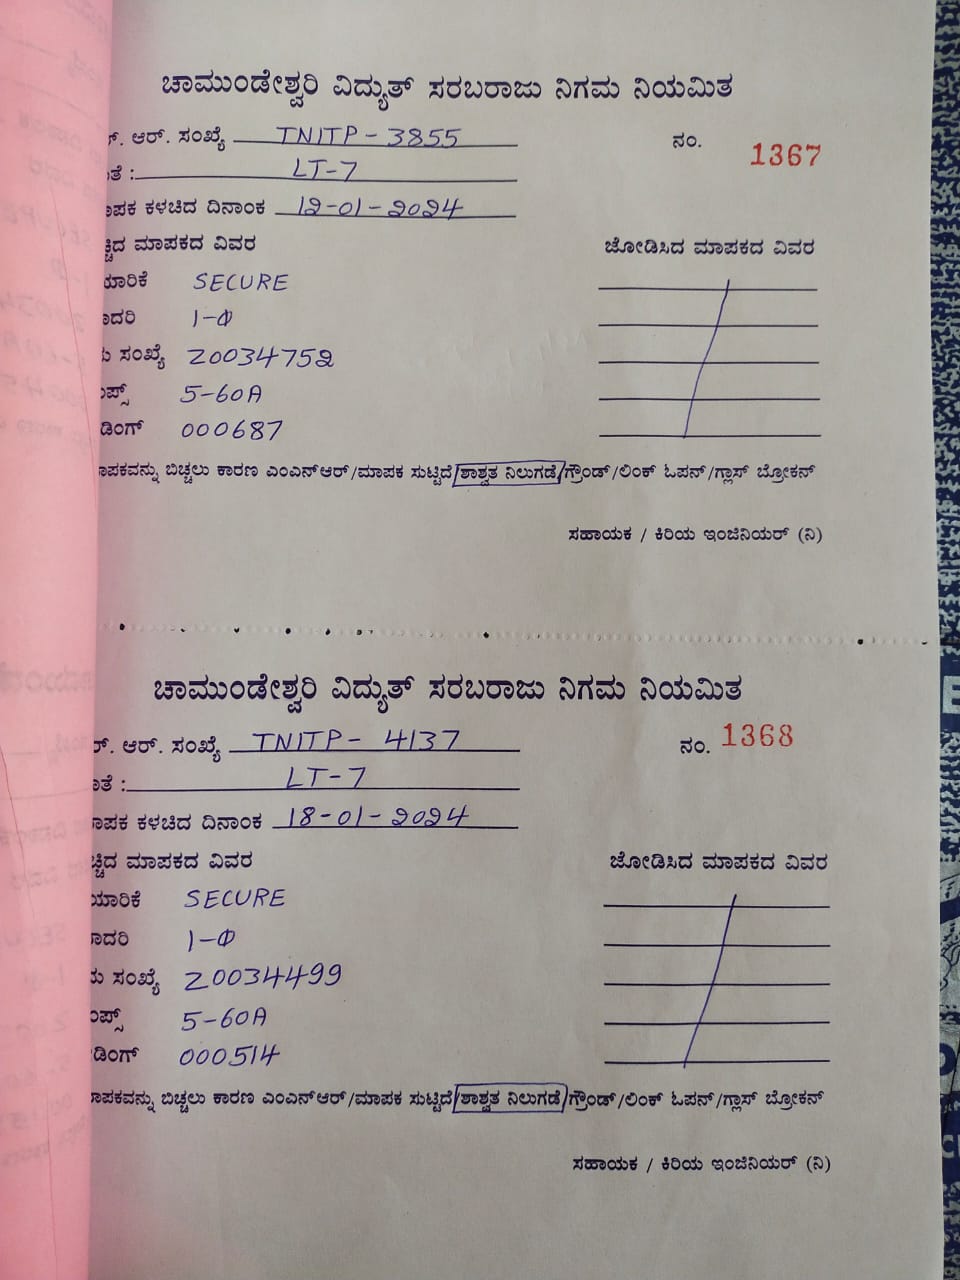 ಚಾಮುಂಡೇಶ್ವರಿ ವಿದ್ಯುತ್ ಸರಬರಾಜು ನಿಗಮ ನಿಯಮಿತ
ಆರ್. ಸಂಖ್ಯೆ TNITP-3855 ನಂ. 1367
LT-7
ಕಳಚಿದ ದಿನಾಂಕ 12-01-2024
ಮಾಪಕದ ವಿವರ ಜೋಡಿಸಿದ ಮಾಪಕದ ವಿವರ
SECURE
1-Φ
ಸಂಖ್ಯೆ 20034752
5-60A
000687
ಬಿಚ್ಚಲು ಕಾರಣ ಎಂಎನ್ಆರ್/ಮಾಪಕ ಸುಟ್ಟಿದೆ/ಶಾಶ್ವತ ನಿಲುಗಡೆ/ಗ್ರೌಂಡ್/ಲಿಂಕ್ ಓಪನ್/ಗ್ಲಾಸ್ ಬ್ರೋಕನ್
ಸಹಾಯಕ / ಕಿರಿಯ ಇಂಜಿನಿಯರ್ (ನಿ)
ಚಾಮುಂಡೇಶ್ವರಿ ವಿದ್ಯುತ್ ಸರಬರಾಜು ನಿಗಮ ನಿಯಮಿತ
ಆರ್. ಸಂಖ್ಯೆ TNITP- 4137 ನಂ. 1368
LT-7
ಕಳಚಿದ ದಿನಾಂಕ 18-01-2024
ಮಾಪಕದ ವಿವರ ಜೋಡಿಸಿದ ಮಾಪಕದ ವಿವರ
SECURE
1-Φ
ಸಂಖ್ಯೆ 20034499
5-60A
000514
ಬಿಚ್ಚಲು ಕಾರಣ ಎಂಎನ್ಆರ್/ಮಾಪಕ ಸುಟ್ಟಿದೆ/ಶಾಶ್ವತ ನಿಲುಗಡೆ/ಗ್ರೌಂಡ್/ಲಿಂಕ್ ಓಪನ್/ಗ್ಲಾಸ್ ಬ್ರೋಕನ್
ಸಹಾಯಕ / ಕಿರಿಯ ಇಂಜಿನಿಯರ್ (ನಿ)